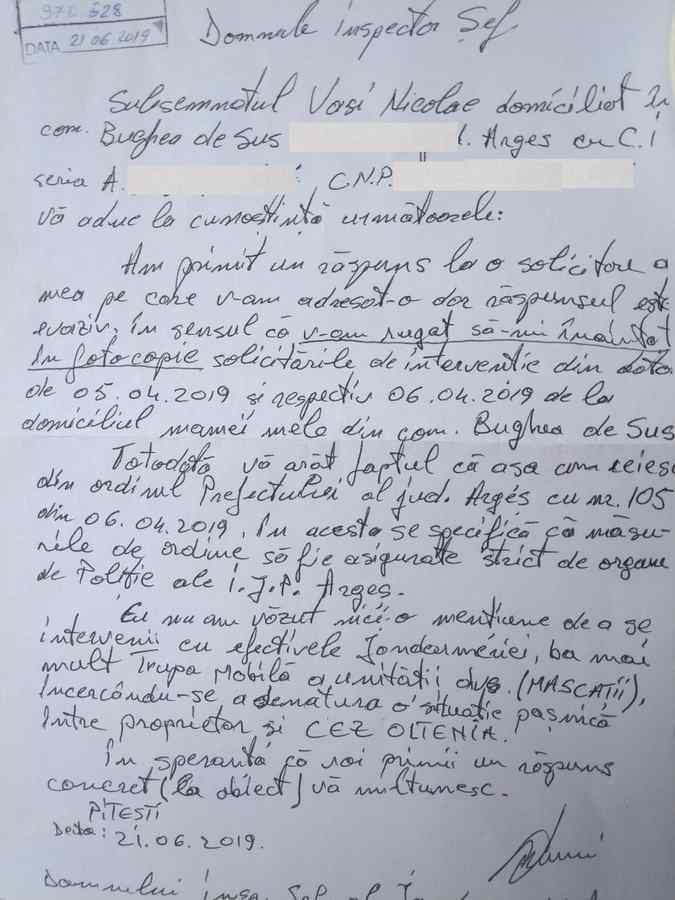 970 628
DATA 21 06 2019
Domnule Inspector Șef
Subsemnatul Vasi Nicolae domiciliat în
com. Bughea de Sus l. Argeș cu C.I
seria A. , C.N.P.
vă aduc la cunoștință următoarele:
Am primit un răspuns la o solicitare a
mea pe care v-am adresat-o dar răspunsul este
evaziv, în sensul că v-am rugat să-mi înaintat
în fotocopie solicitările de interventie din data
de 05.04.2019 și respectiv 06.04.2019 de la
domiciliul mamei mele din com. Bughea de Sus
Totodată vă arăt faptul că așa cum reiese
din ordinul Prefectului al jud. Argeș cu nr. 105
din 06.04.2019, în acesta se specifică că măsu-
rile de ordine să fie asigurate strict de organe
de Poliție ale I.J.P. Argeș.
Eu nu am văzut nici-o mentiune de a se
intervenii cu efectivele Jandarmeriei, ba mai
mult Trupa Mobilă a unității dvs. (MASCAȚII),
încercându-se a denatura o situație pașnică
între proprietar și CEZ OLTENIA.
În speranța că voi primii un răspuns
concret (la obiect) vă multumesc.
PITEȘTI
Data: 21.06.2019.
Domnului Insp. Șef al